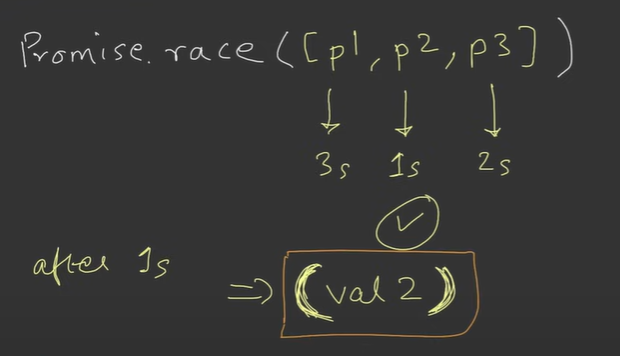 Promise.race([p1, p2, p3])
3s 1s 2s
after 1s
=> (val 2)